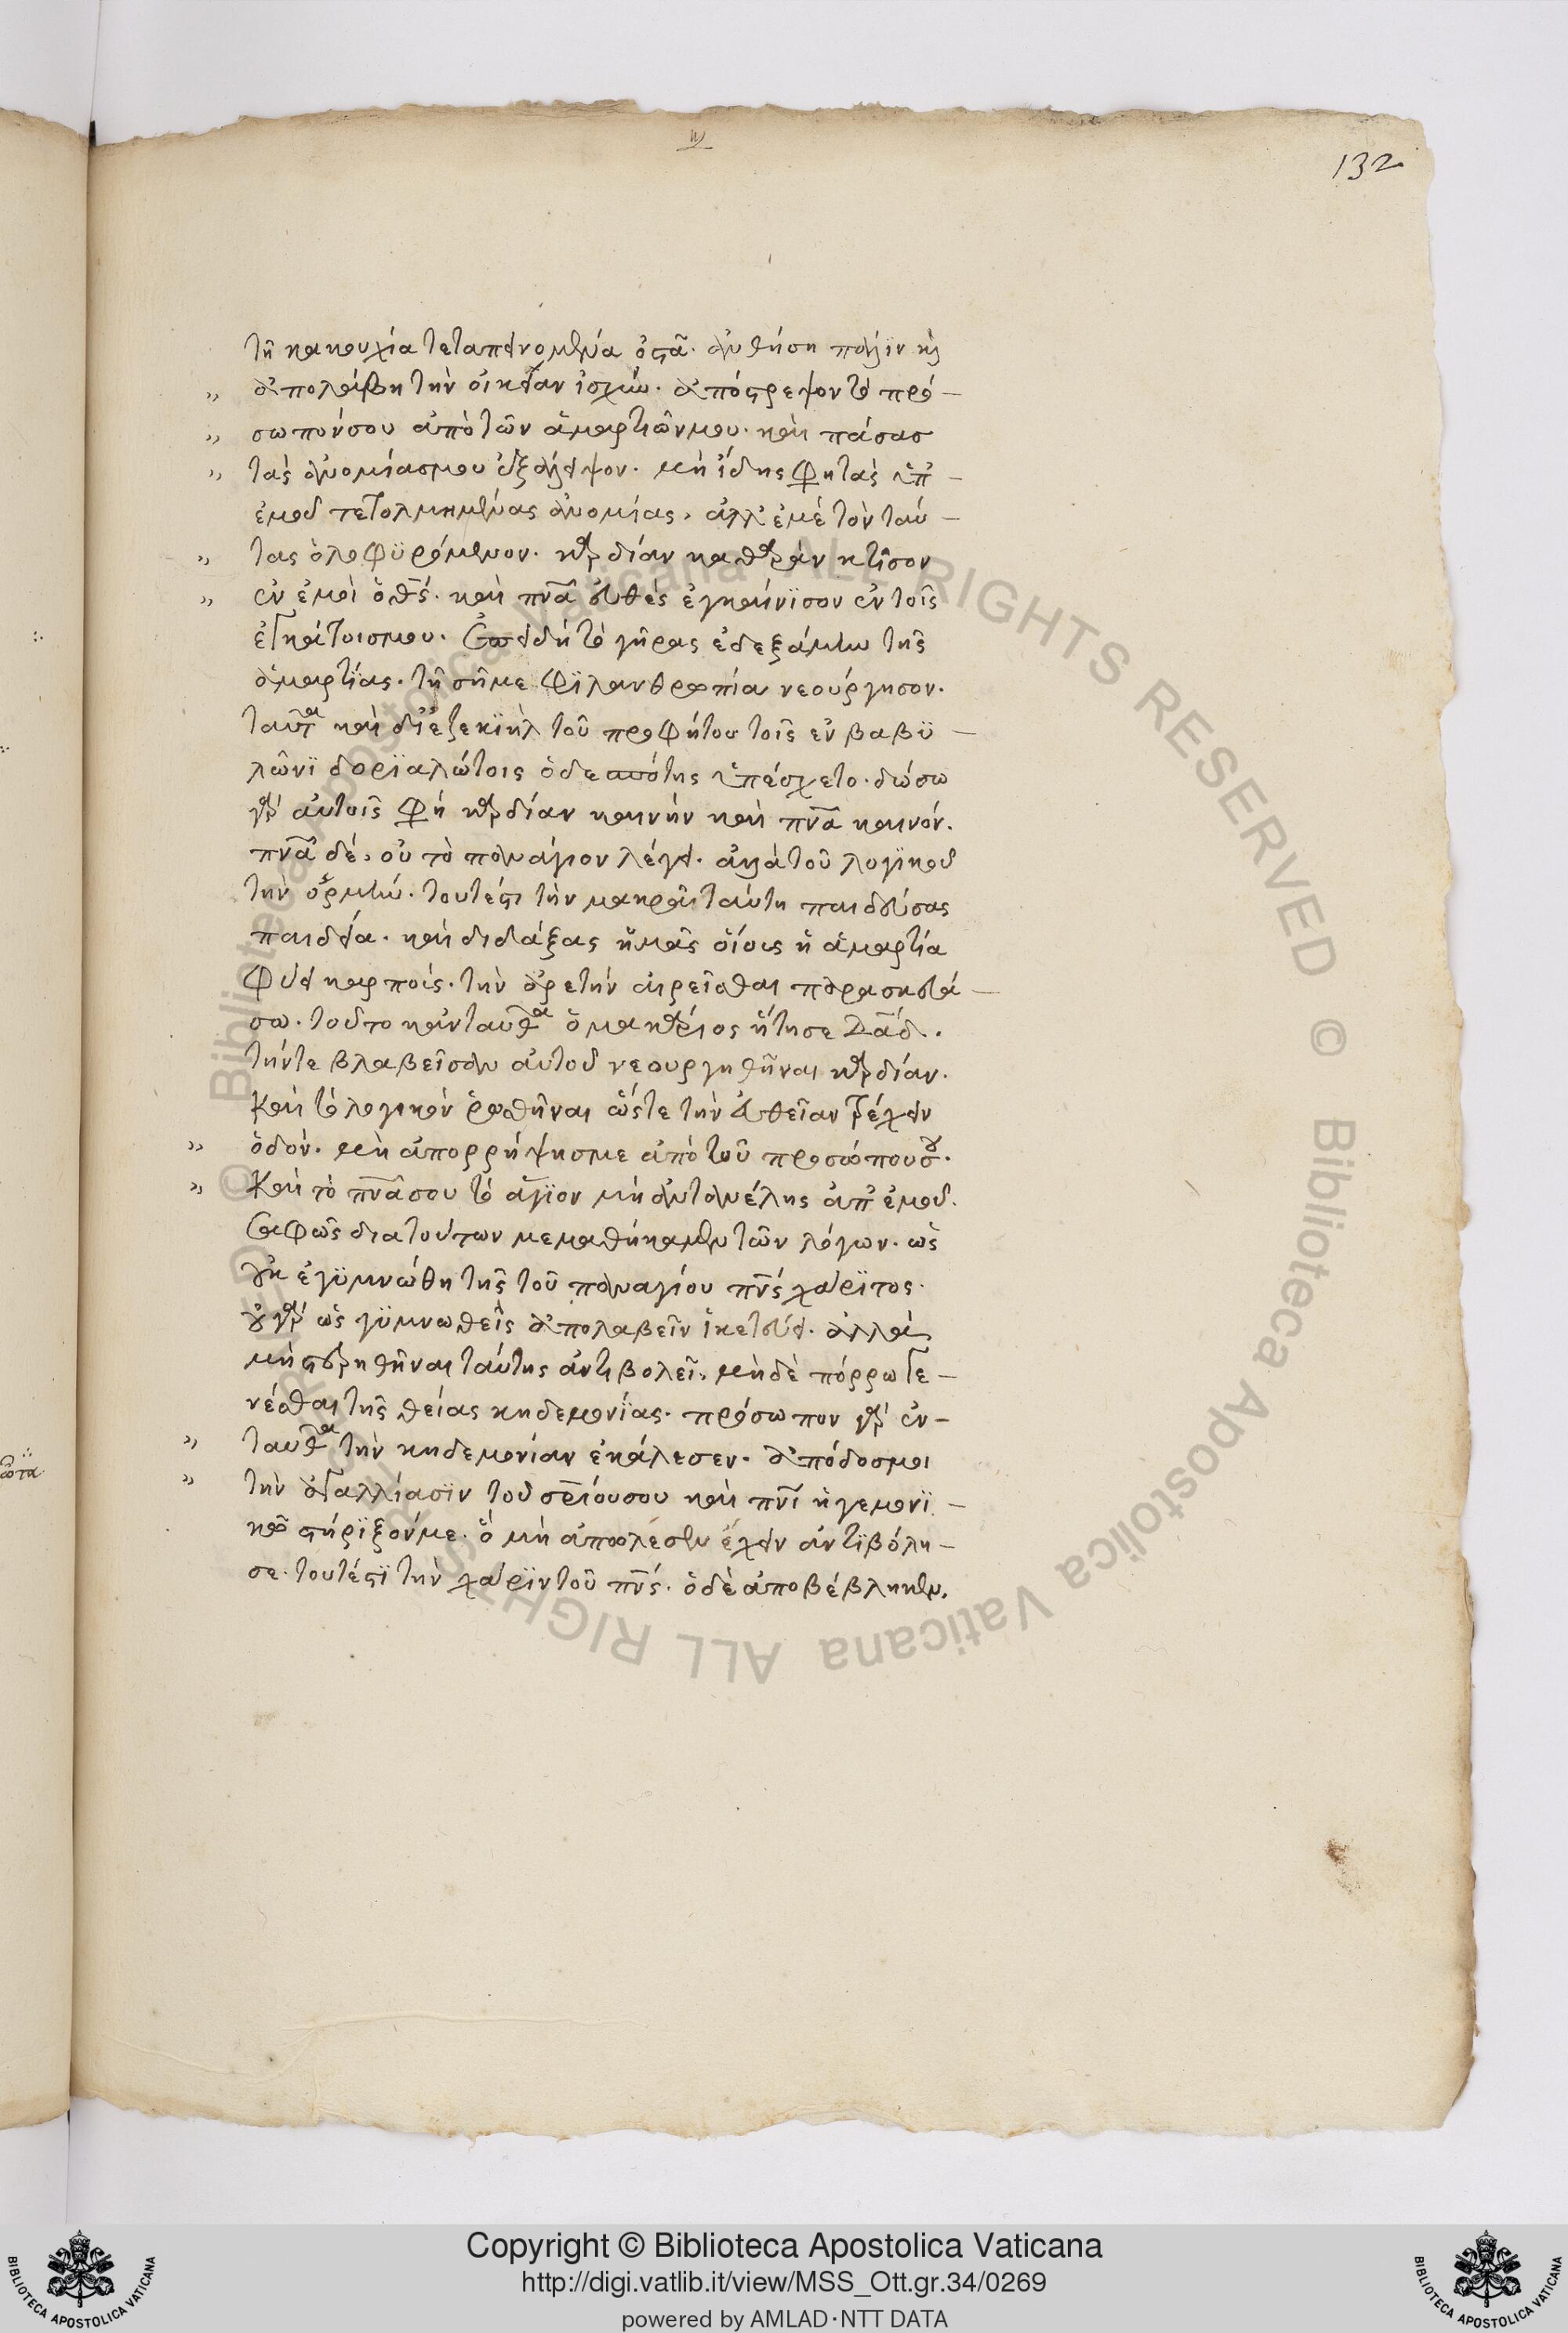 132
τῆ κακουχία τεταπεινομένα ὀστᾶ. ἀνθήση πάλιν κὶ
„ ἀπολάβη τὴν οἰκείαν ἰσχύν. ἀπόστρεψον τὸ πρό-
„ σωπόνσου ἀπὸ τῶν ἁμαρτιῶνμου. καὶ πάσας
„ τὰς ἀνομίασμου ἐξάλειψον. μὴ ἴδης φη τὰς ὑπ'
ἐμοῦ τετολμημένας ἀνομίας, ἀλλ' ἐμὲ τὸν ταύ-
„ τας ὀλοφϋρόμενον. καρδίαν καθαρὰν κτίσον
„ ἐν ἐμοὶ ὁ θς. καὶ πνα εὐθὲς ἐγκαίνϊσον ἐν τοῖς
ἐγκάτοισμου. ἐπειδὴ τὸ γῆρας ἐδεξάμην τῆς
ἁμαρτίας. τῆ σῆμε φϊλανθρωπία νεούργησον.
ταῦτα καὶ δι' ἐζεκϊὴλ τοῦ προφήτου τοῖς ἐν βαβϋ-
λῶνϊ δορϊαλώτοις ὁ δεσπότης ὑπέσχετο. δώσω
γὰρ αὐτοῖς φη καρδίαν καινὴν καὶ πνα καινόν.
πνα δέ, οὐ τὸ πανάγιον λέγει. ἀλλὰ τοῦ λογϊκοῦ
τὴν ὁρμήν. τουτέστι τὴν μακρᾶ ταύτη παιδεύσας
παιδεία. καὶ διδάξας ἡμᾶς οἵους ἡ ἁμαρτία
φύει καρπούς. τὴν ἀρετὴν αἱρεῖσθαι παρασκευά-
σω. τοῦτο κἀνταῦθα ὁ μακάριος ἤτησε Δαδ.
τήντε βλαβεῖσαν αὐτοῦ νεουργηθῆναι καρδίαν.
Καὶ τὸ λογικὸν ῥωσθῆναι ὥστε τὴν εὐθεῖαν τρέχειν
„ ὁδόν. μὴ ἀπορρήψησμε ἀπὸ τοῦ προσώπουσου.
„ Καὶ τὸ πνασου τὸ ἅγϊον μὴ ἀντανέλης ἀπ' ἐμοῦ.
Σαφῶς διατούτων μεμαθήκαμεν τῶν λόγων. ὡς
οὐκ ἐγϋμνώθη τῆς τοῦ παναγίου πνς χάρϊτος.
οὐ γὰρ ὡς γϋμνωθεὶς ἀπολαβεῖν ἱκετεύει. ἀλλὰ
μὴ στερηθῆναι ταύτης ἀντιβολεῖ. μὴδὲ πόρρω γε-
νέσθαι τῆς θείας κηδεμονΐας. πρόσωπον γὰρ ἐν-
„ ταῦθα τὴν κηδεμονίαν ἐκάλεσεν. ἀπόδοσμοι
„ τὴν ἀγαλλίασϊν τοῦ σρίουσου καὶ πνι ἡγεμονϊ-
κῶ στήρϊξόνμε. ὃ μὴ ἀπολέσαν ἔχειν ἀντϊβόλη-
σε. τουτέστϊ τὴν χάρϊν τοῦ πνς. ὃ δὲ ἀποβέβληκεν.
Copyright © Biblioteca Apostolica Vaticana
http://digi.vatlib.it/view/MSS_Ott.gr.34/0269
powered by AMLAD·NTT DATA
BIBLIOTECA APOSTOLICA VATICANA
BIBLIOTECA APOSTOLICA VATICANA